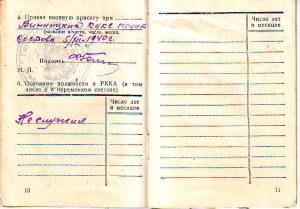 5. Принял военную присягу при
Винницких КУКС
(название в/части, число, месяц,
5/XII-1940 г.
Подпись
М. П.
6. Основные должности в РККА (в том
числе и в переменном составе).
Число лет
и месяцев
Не служил
10
Число лет
и месяцев
11